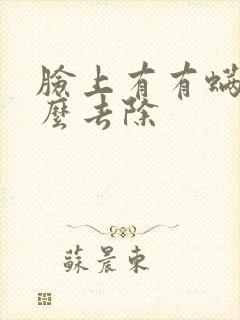 臉上有有螨
麼去除
蘇晨東